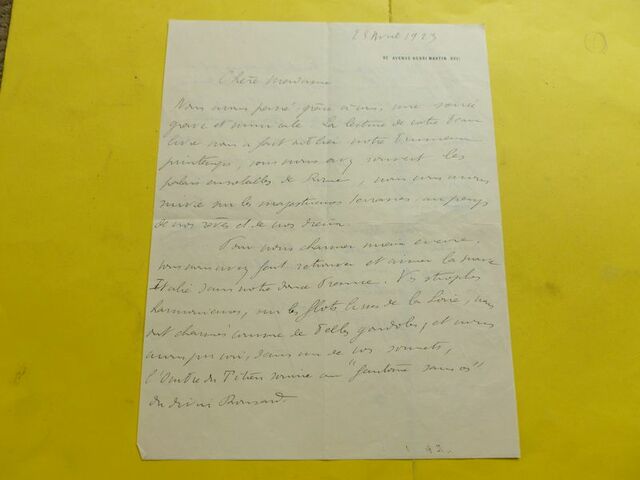 28 Avril 1923
92 AVENUE HENRI MARTIN. XVI
Chère Madame
Nous avons passé grâce à vous, une soirée
grave et . La lecture de votre beau
livre nous a fait oublier notre brumeux
printemps, vous nous avez rouvert les
palais ensoleillés de Rome, nous vous avons
suivie sur les majestueuses terrasses au pays
de nos rêves et de nos dieux.
Pour nous charmer mieux encore,
vous nous avez fait retrouver et aimer la
Italie dans notre douce France. Vos strophes
harmonieuses, sur les flots lisses de la Loire, nous
ont charmés comme de belles gondoles, et nous
avons pu voir, dans un de vos sonnets,
l'Ombre du Titien sourire au "fantôme sans os"
du divin Ronsard.